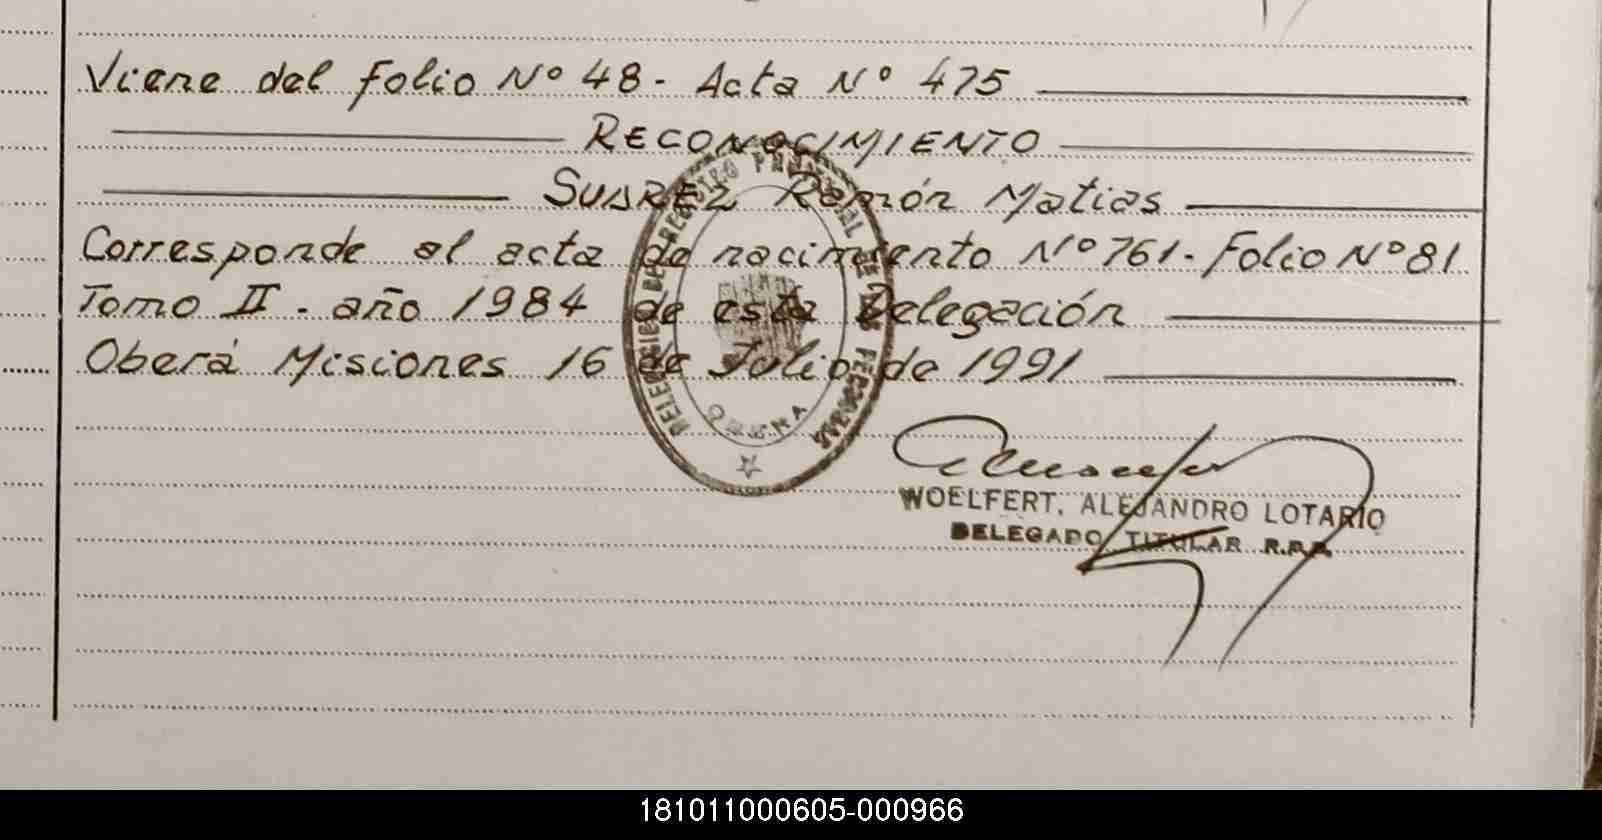 Viene del folio Nº 48 - Acta Nº 475
RECONOCIMIENTO
SUAREZ Ramón Matias
Corresponde al acta de nacimiento Nº 761 - Folio Nº 81
Tomo II - año 1984 de esta Delegación
Oberá Misiones 16 de Julio de 1991
WOELFERT, ALEJANDRO LOTARIO
DELEGADO TITULAR R.P.P.
181011000605-000966